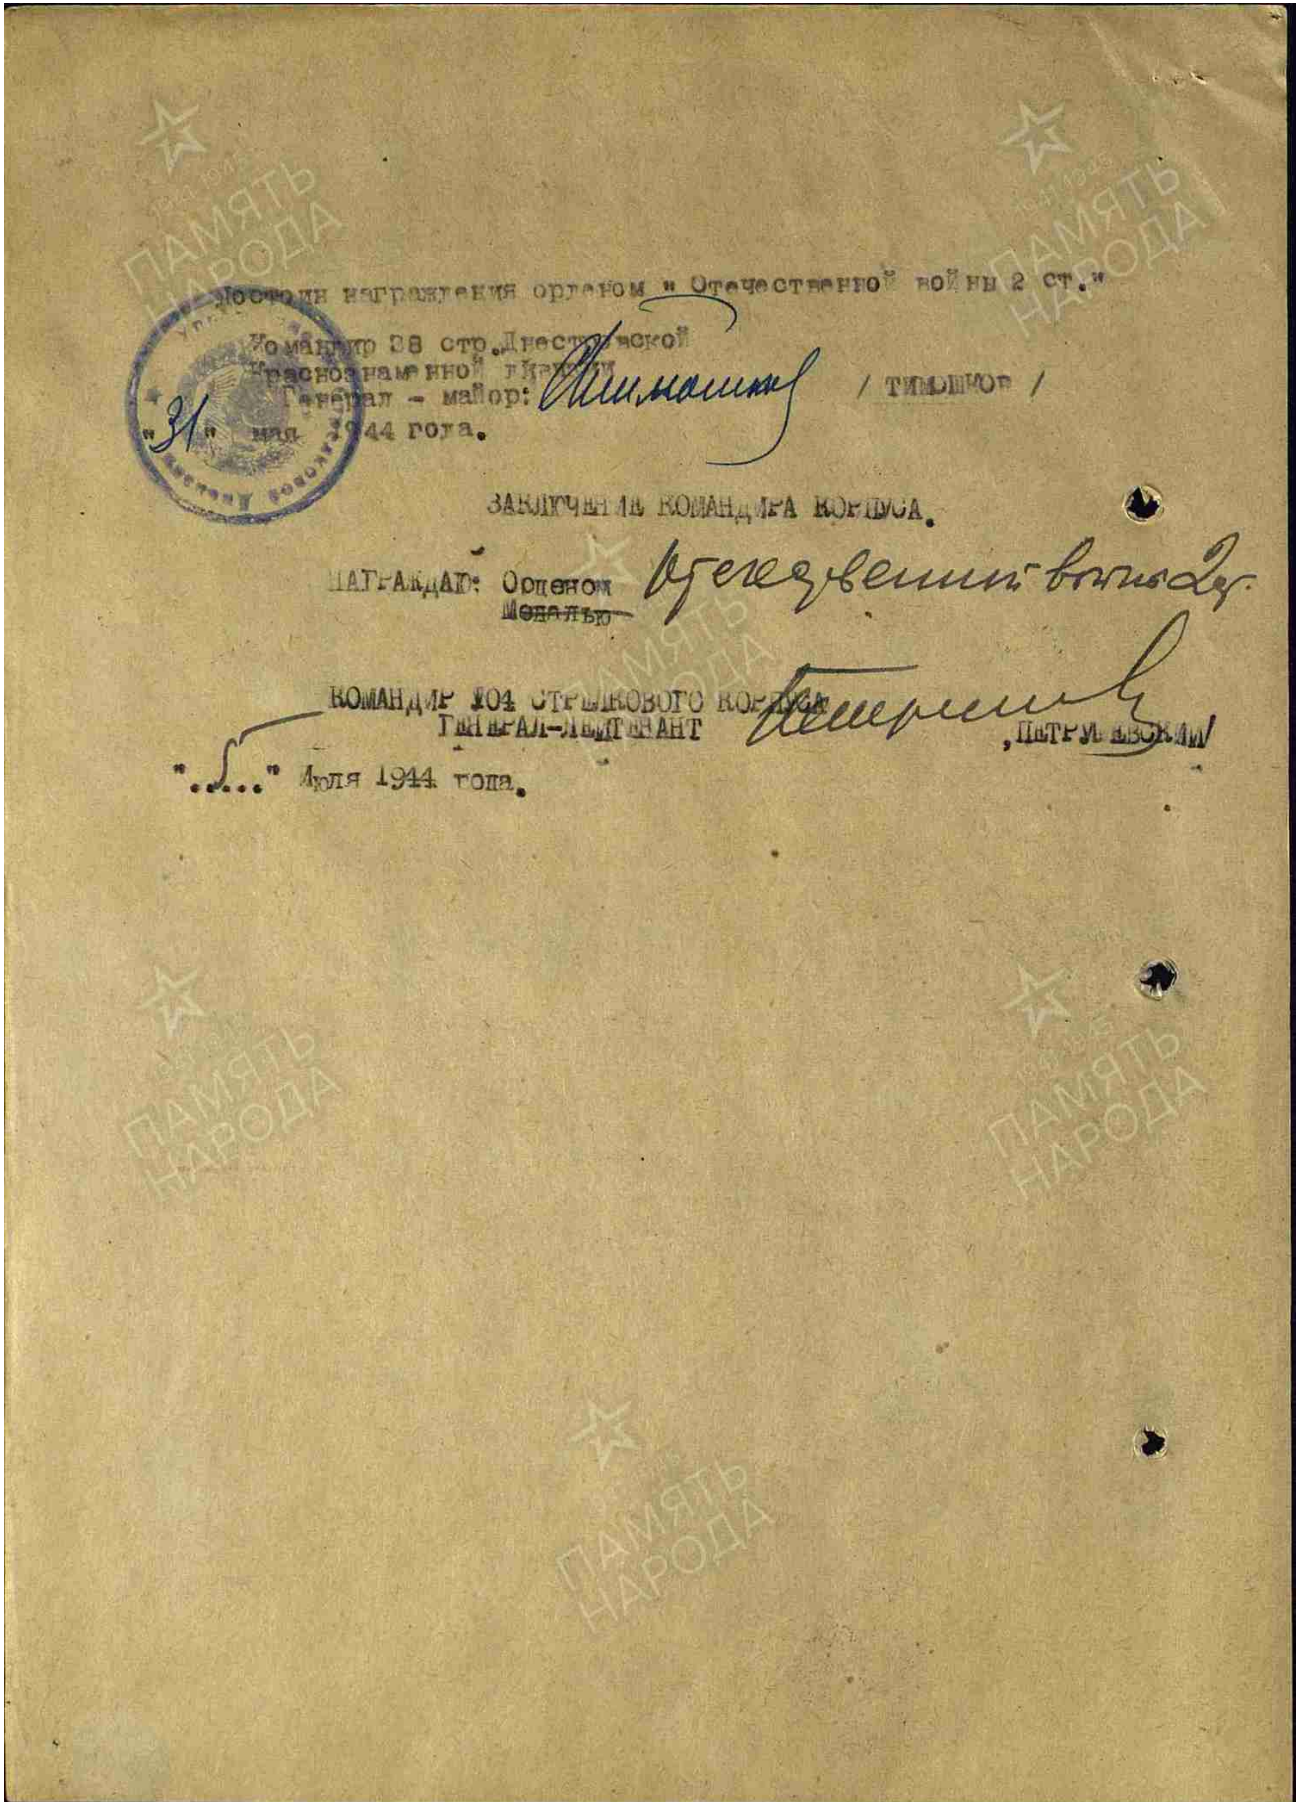 Достоин награждения орденом " Отечественной войны 2 ст."
Командир 38 стр.Днестровской
Краснознаменной дивизии
Генерал - майор: / ТИМОШКОВ /
"31" мая 1944 года.
ЗАКЛЮЧЕНИЕ КОМАНДИРА КОРПУСА.
НАГРАЖДАЮ: Орденом Отечественной войны 2 ст.
Медалью
КОМАНДИР 104 СТРЕЛКОВОГО КОРПУСА
ГЕНЕРАЛ-ЛЕЙТЕНАНТ ПЕТРУШЕВСКИЙ/
"....." Июля 1944 года.
ПАМЯТЬ
НАРОДА
ПАМЯТЬ
НАРОДА
ПАМЯТЬ
НАРОДА
ПАМЯТЬ
НАРОДА
ПАМЯТЬ
НАРОДА
ПАМЯТЬ
НАРОДА